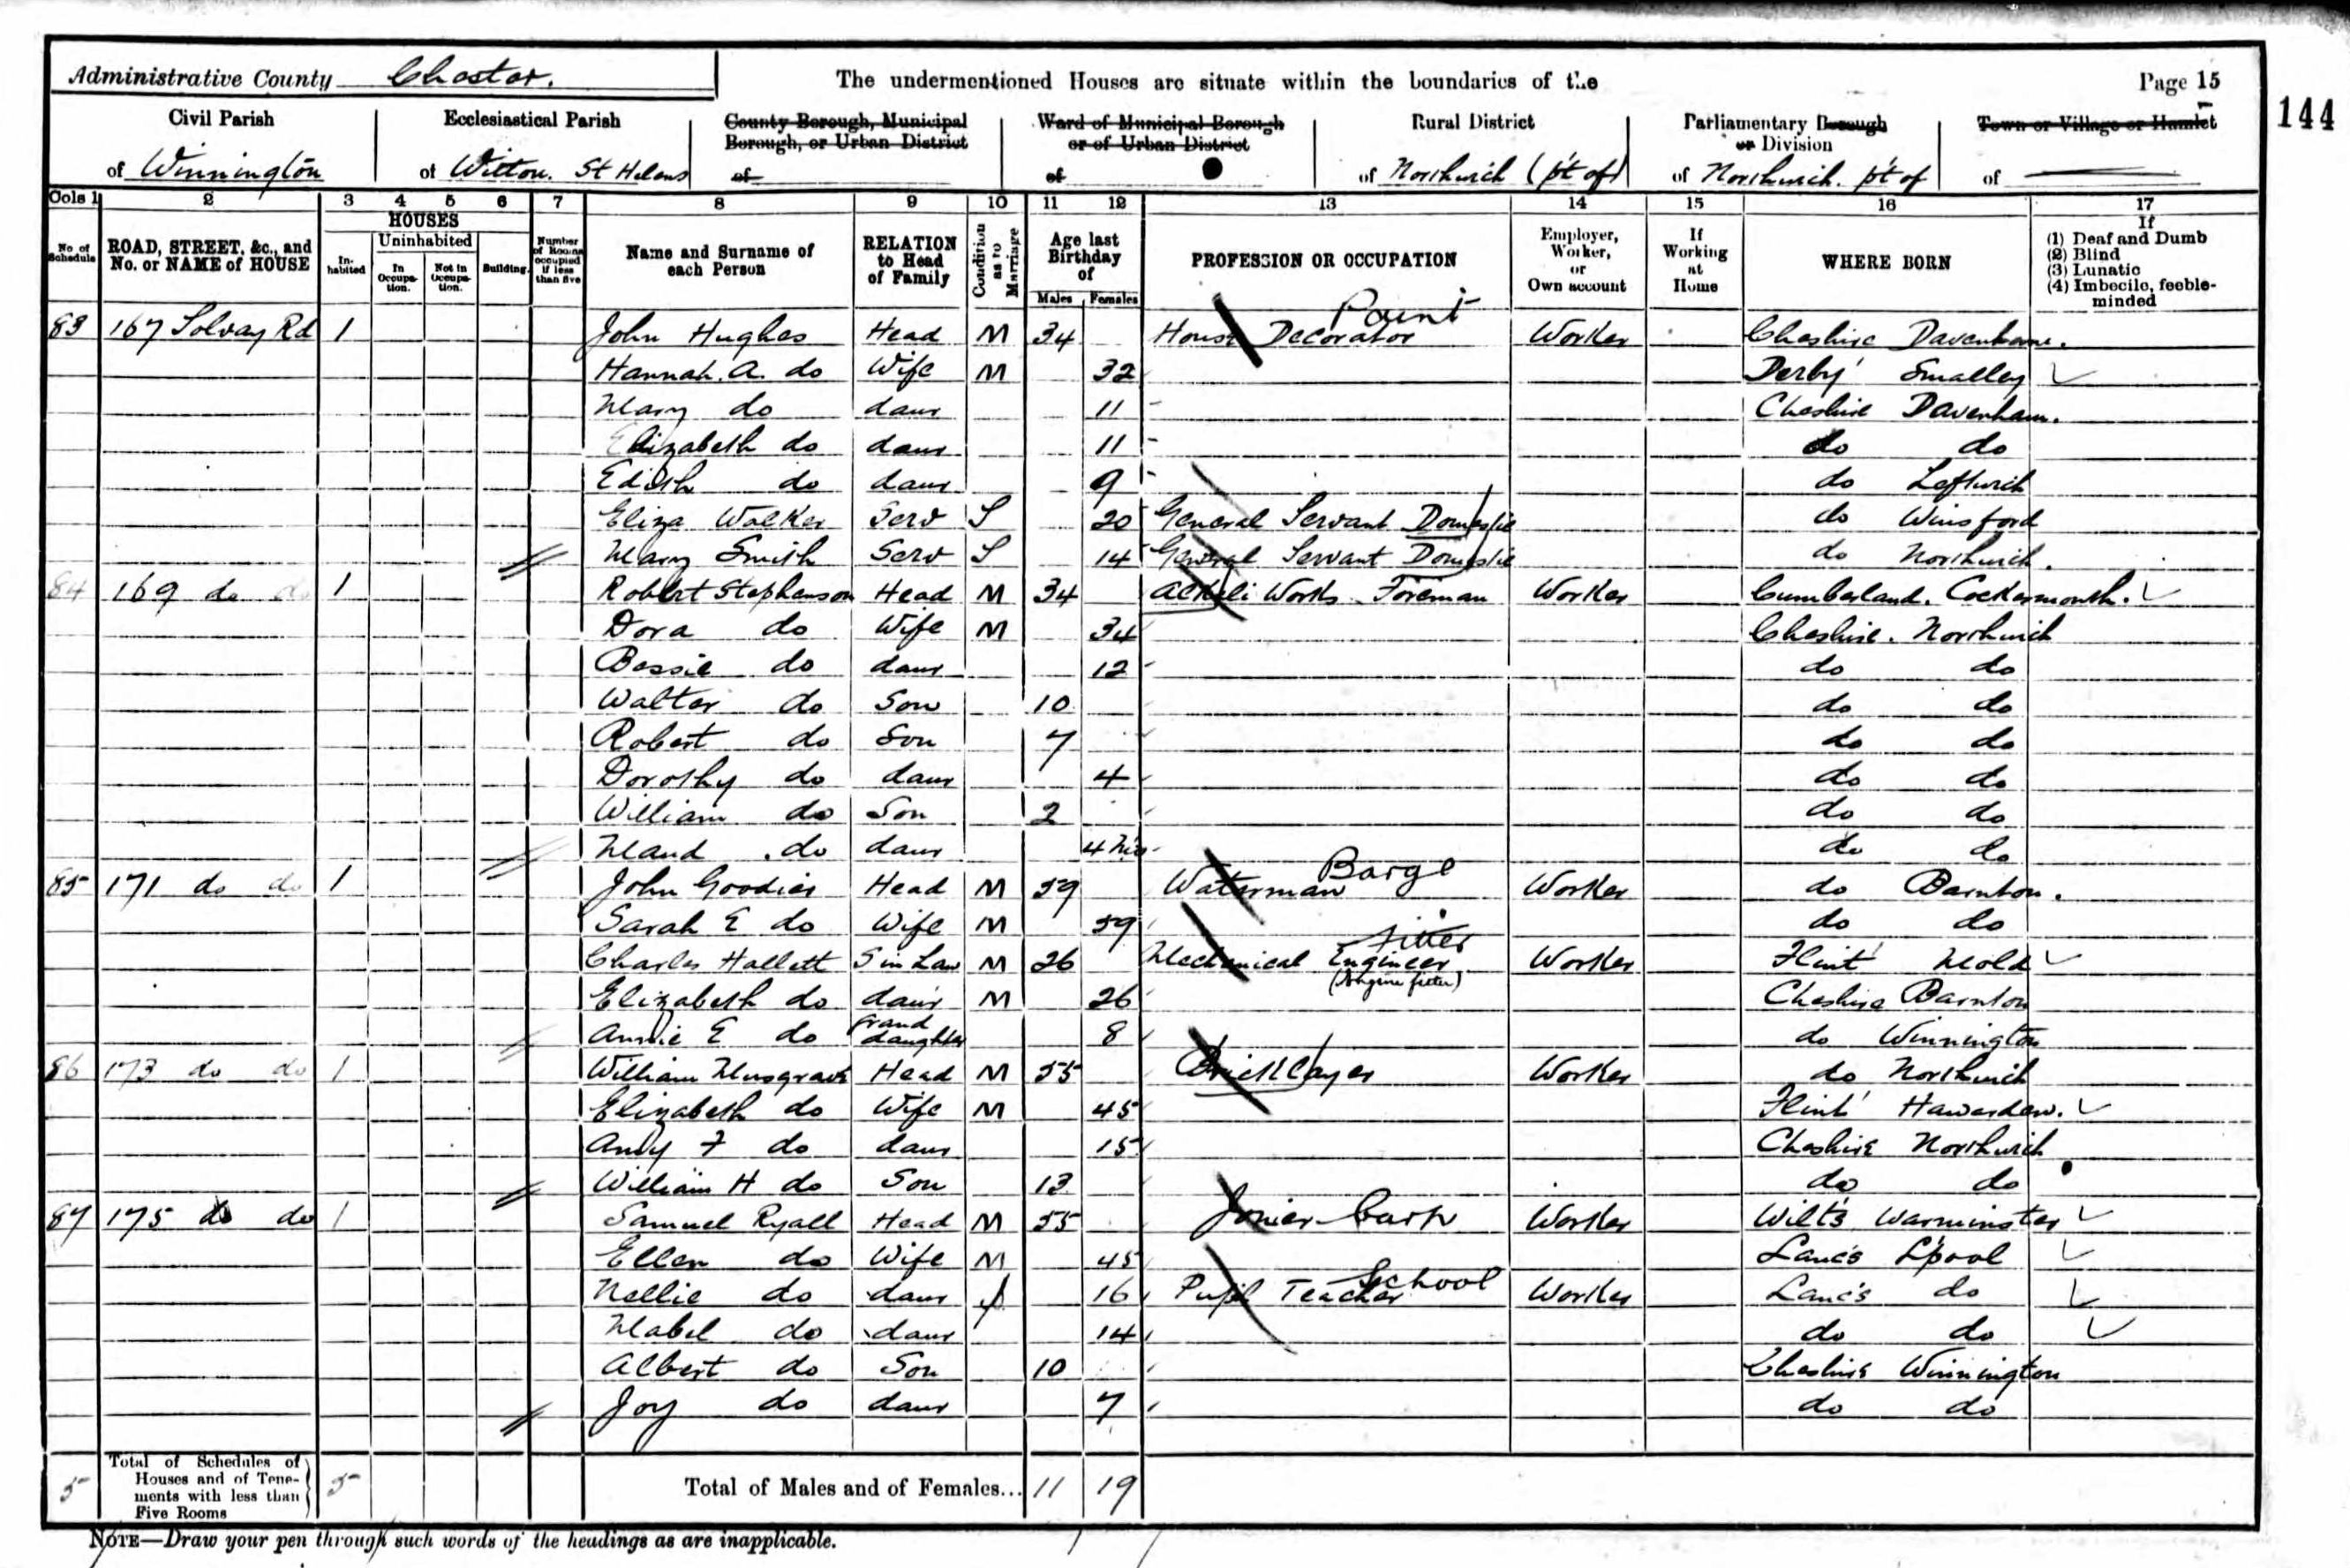 Administrative County Chester. The undermentioned Houses are situate within the boundaries of the Page 15
144
Civil Parish Ecclesiastical Parish County Borough, Municipal Borough, or Urban District Ward of Municipal Borough or of Urban District Rural District Parliamentary Borough or Division Town or Village or Hamlet
of Winnington of Witton. St Helens of of of Northwich (pt of) of Northwich. pt of of
Cols 1 2 3 4 5 6 7 8 9 10 11 12 13 14 15 16 17
No of Schedule ROAD, STREET, &c., and No. or NAME of HOUSE HOUSES Inhabited Uninhabited In Occupation. Not in Occupation. Building. Number of Rooms occupied if less than five Name and Surname of each Person RELATION to Head of Family Condition as to Marriage Age last Birthday of Males Females PROFESSION OR OCCUPATION Employer, Worker, or Own account If Working at Home WHERE BORN If (1) Deaf and Dumb (2) Blind (3) Lunatic (4) Imbecile, feeble-minded
Paint
83 167 Solvay Rd 1 John Hughes Head M 34 House Decorator Worker Cheshire Davenham.
Hannah. A. do Wife M 32 Derby Smalley
Mary do daur 11 Cheshire Davenham.
Elizabeth do daur 11 do do
Edith do daur 9 do Leftwich
Eliza Walker Serv S 20 General Servant Domestic do Winsford
Mary Smith Serv S 14 General Servant Domestic do Northwich.
84 169 do do 1 Robert Stephenson Head M 34 Alkali Works Foreman Worker Cumberland. Cockermouth.
Dora do Wife M 34 Cheshire. Northwich
Bessie do daur 12 do do
Walter do Son 10 do do
Robert do Son 7 do do
Dorothy do daur 4 do do
William do Son 2 do do
Maud do daur 4 Mo do do
Barge
85 171 do do 1 John Goodier Head M 59 Waterman Worker do Barnton.
Sarah E do Wife M 59 do do
fitter
Charles Hallett S in Law M 26 Mechanical Engineer Worker Flint Mold
(Engine fitter)
Elizabeth do daur M 26 Cheshire Barnton
Annie E do Grand daughter 8 do Winnington
86 173 do do 1 William Musgrave Head M 55 Bricklayer Worker do Northwich
Elizabeth do Wife M 45 Flint Hawarden.
F do daur 15 Cheshire Northwich
William H do Son 13 do do
87 175 do do 1 Samuel Ryall Head M 55 Joiner Carp Worker Wilts Warminster
Ellen do Wife M 45 Lancs L'pool
School
Nellie do daur S 16 Pupil Teacher Worker Lancs do
Mabel do daur 14 do do
Albert do Son 10 Cheshire Winnington
Joy do daur 7 do do
5 Total of Schedules of Houses and of Tenements with less than Five Rooms 5 Total of Males and of Females... 11 19
NOTE—Draw your pen through such words of the headings as are inapplicable.